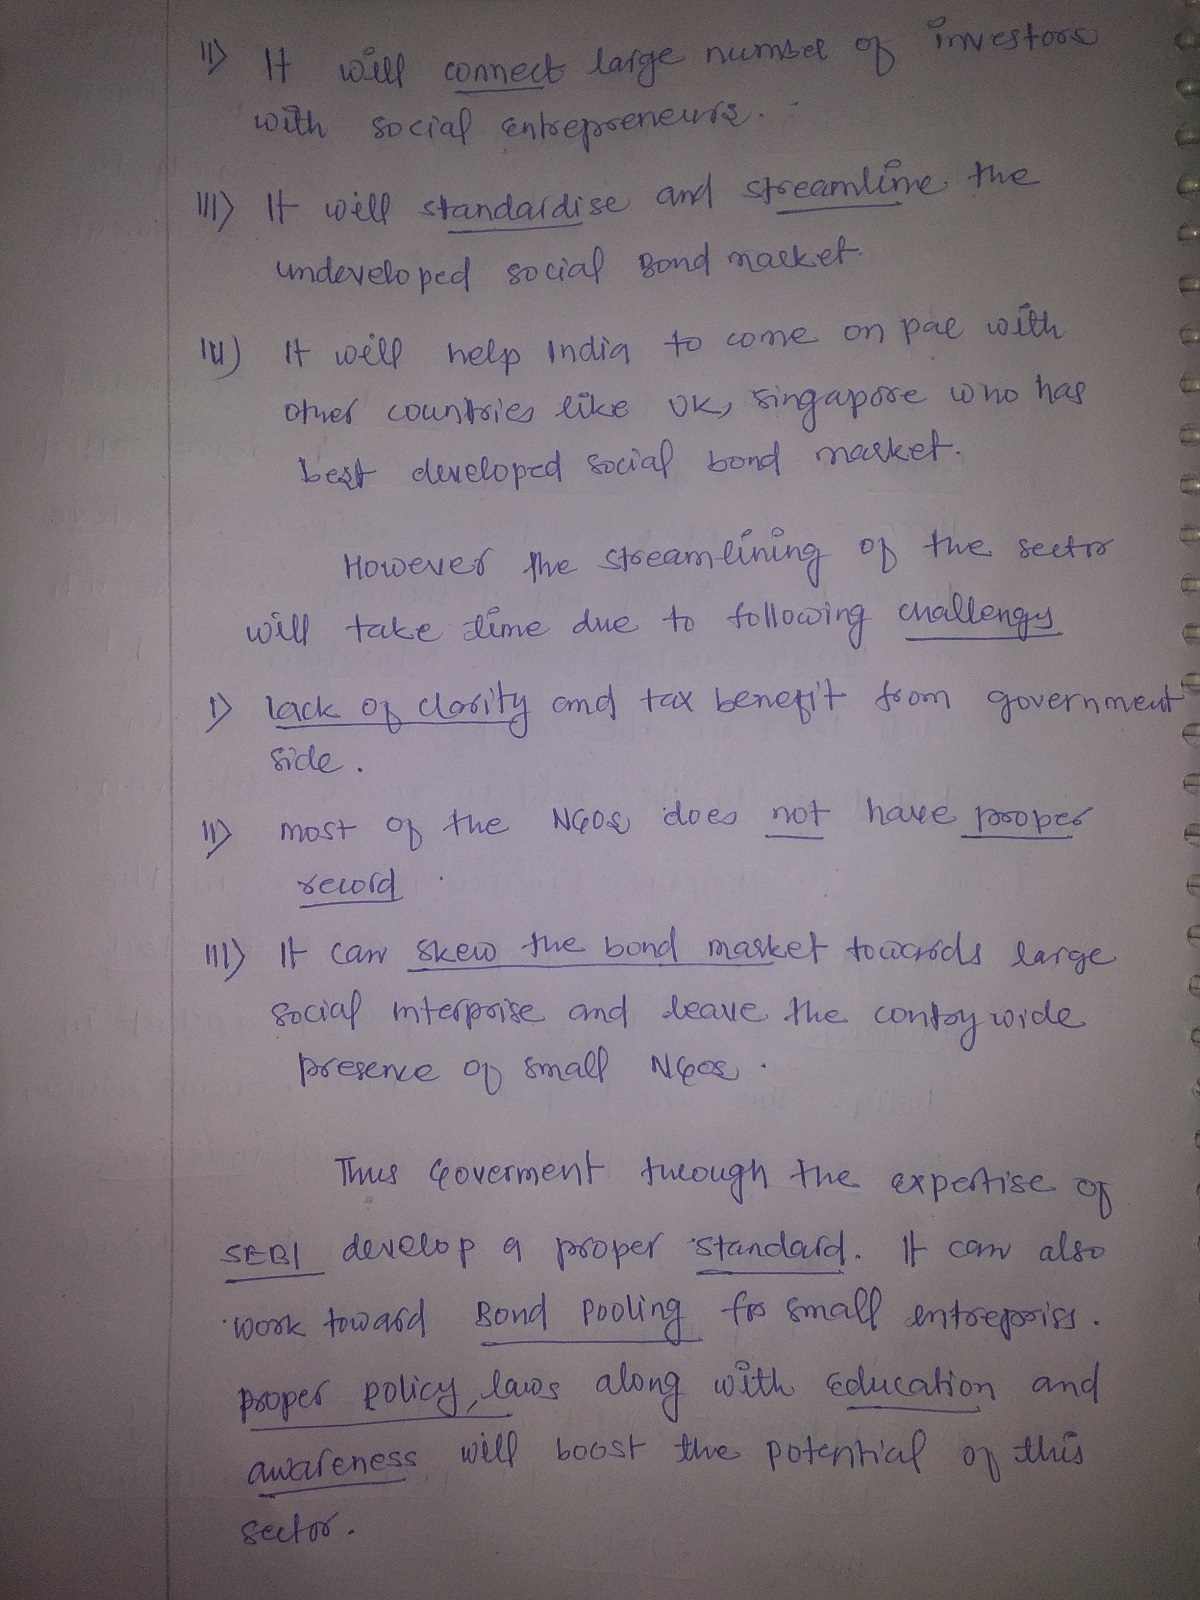 II) It will connect large number of investors
with social entrepreneurs.
III) It will standardise and streamline the
undeveloped social Bond market.
IV) It will help India to come on par with
other countries like UK, Singapore who has
best developed social bond market.
However the streamlining of the sector
will take time due to following challenges
I) lack of clarity and tax benefit from government
side.
II) most of the NGOs does not have proper
record.
III) It can skew the bond market towards large
social interprise and leave the contry wide
presence of small NGOs.
Thus Goverment through the expertise of
SEBI develop a proper standard. It can also
work toward Bond Pooling for small entrepriss.
proper policy, laws along with Education and
awareness will boost the potential of this
sector.